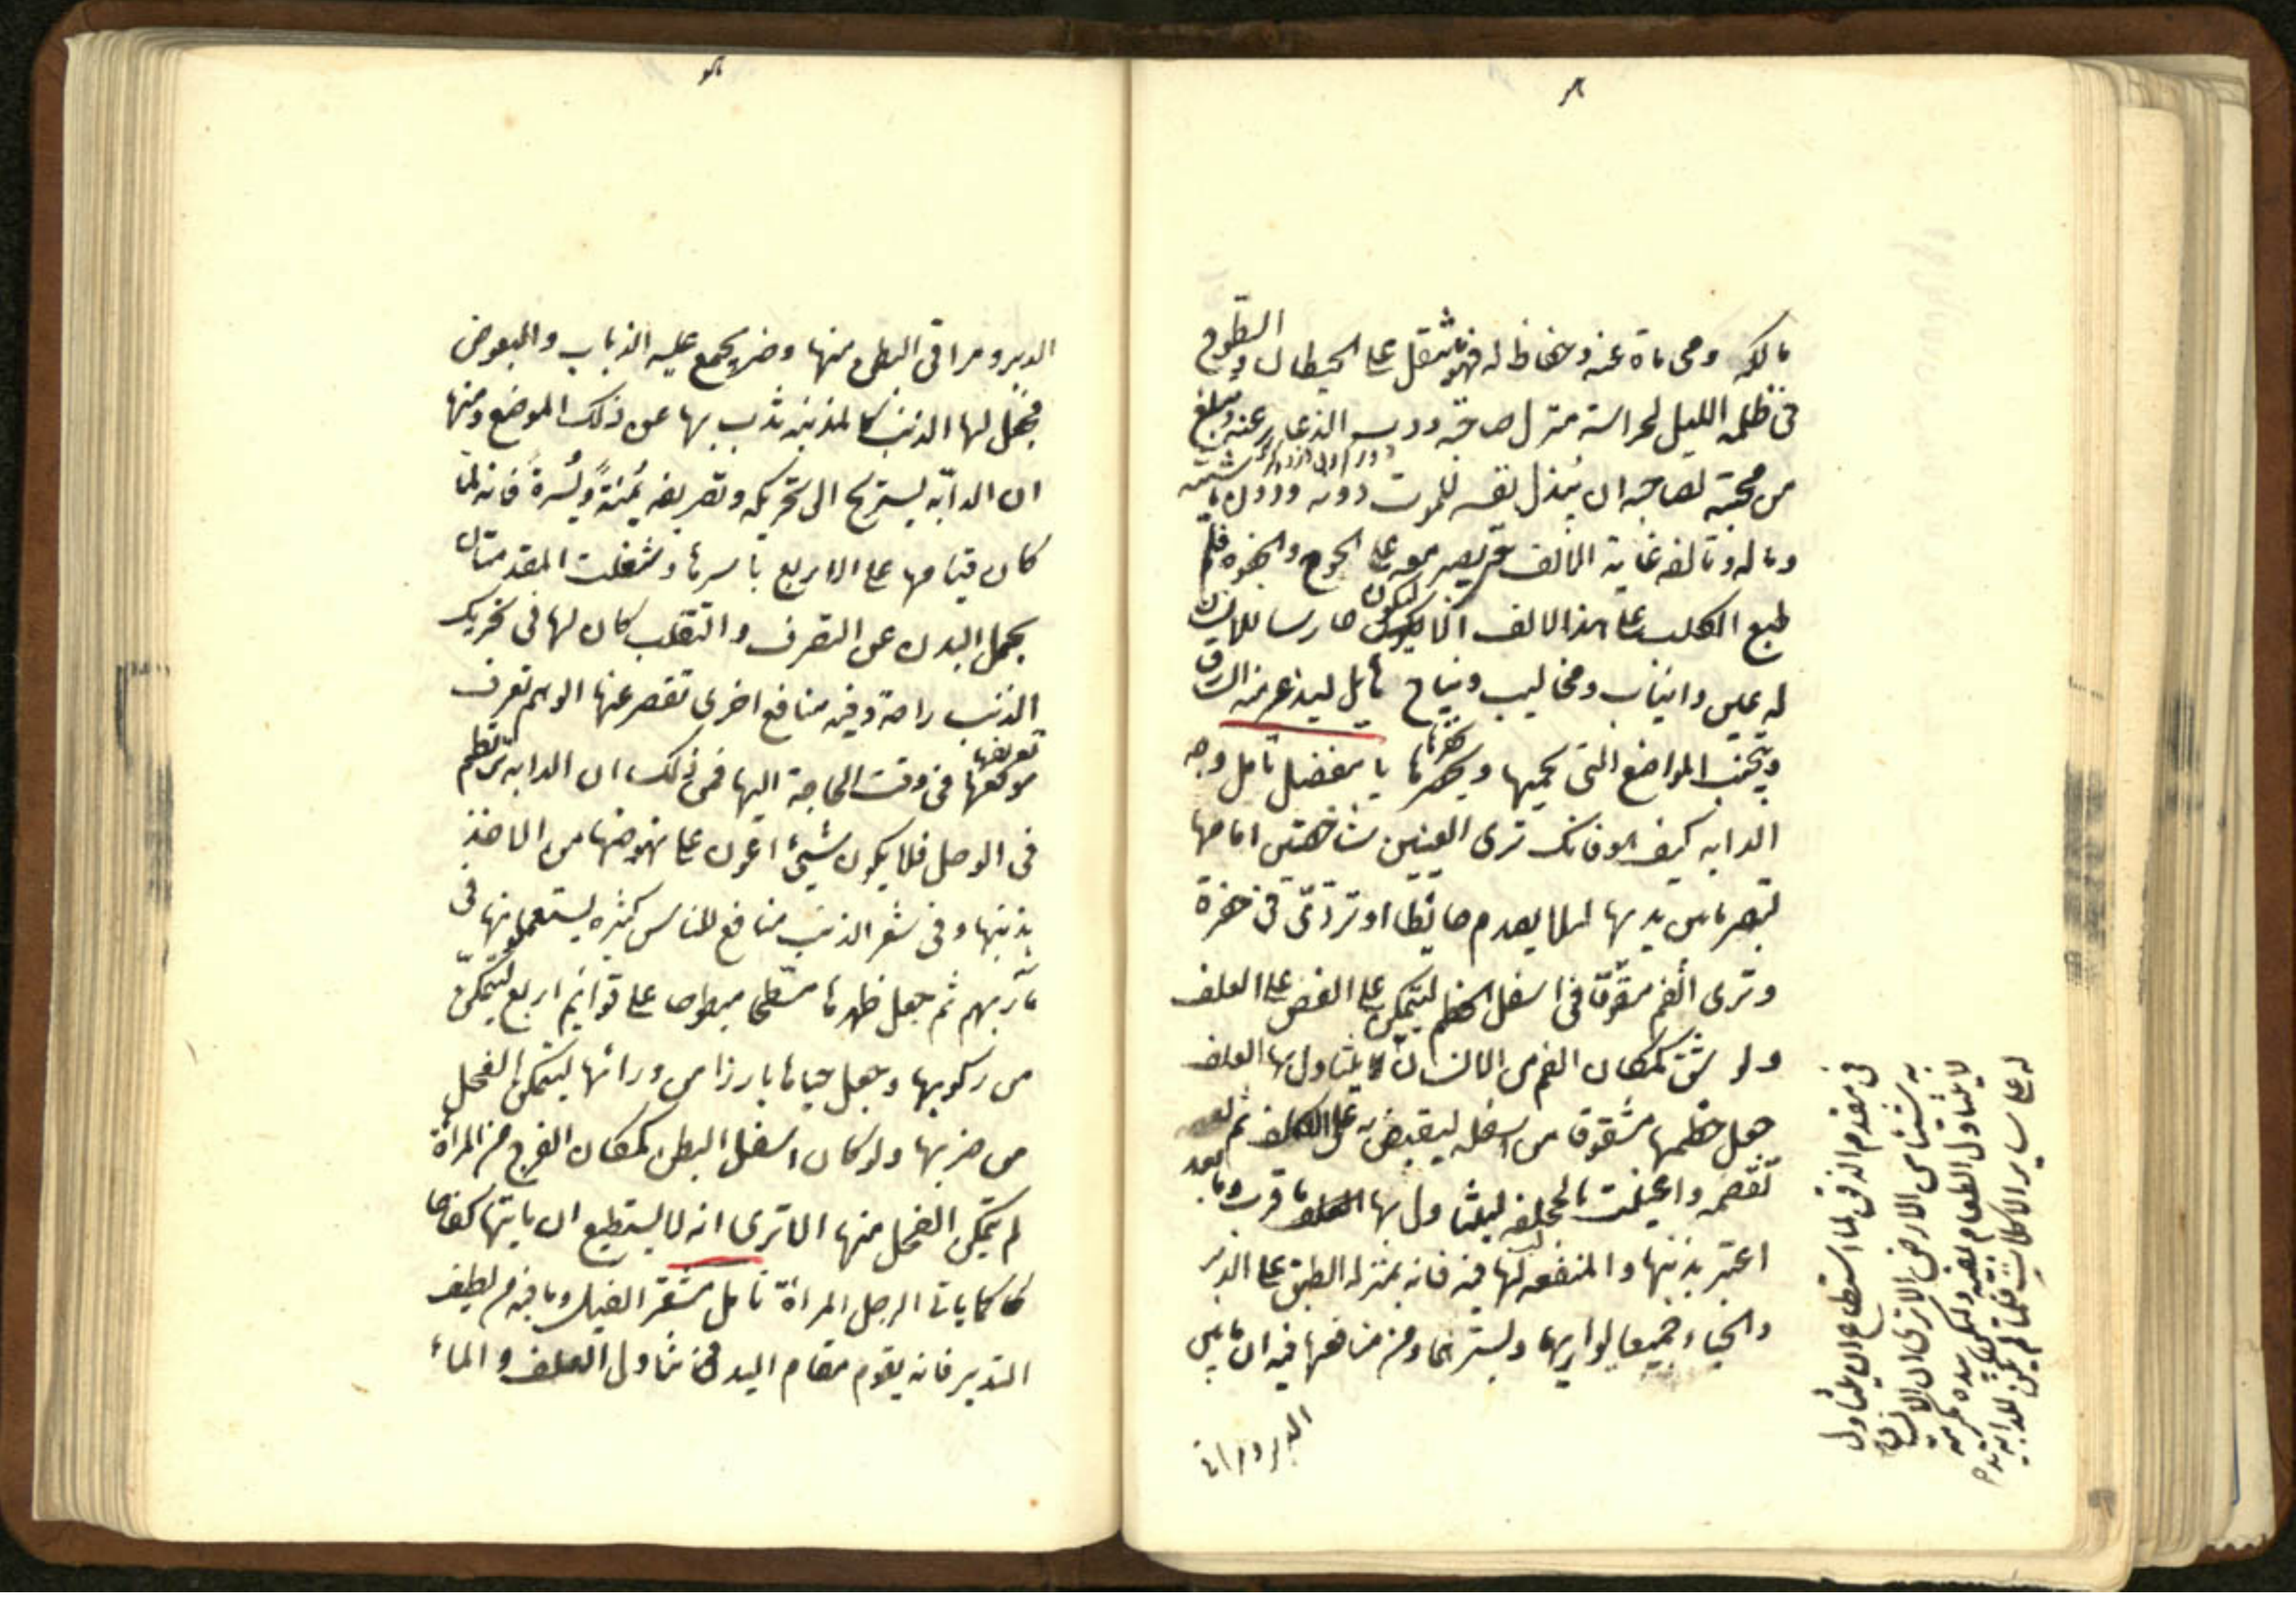 مالكه ومحاماة عنه وحفاظ له فهو ينتقل على الحيطان والسطوح
فى ظلمة الليل لحراسة منزل صاحبه وذب الذعار عنه ويبلغ
من محبته لصاحبه ان يبذل نفسه للموت دونه ودون ماشيته
وماله ويالفه غاية الالف حتى يصبر معه على الجوع والجفوة فلم
طبع الكلب على هذا الالف الا ليكون حارسا للانسان
له عين وانياب ومخاليب ونباح هائل ليذعر منه السارق
ويتجنب المواضع التى يحميها ويخفرها يا مفضل تامل وجه
الدابه كيف هو فانك ترى العينين شاخصتين امامها
لتبصر ما بين يديها لئلا يصدم حائطا او تتردى فى حفرة
وترى الفم مشقوقا فى اسفل الخطم ليتمكن على العض على العلف
ولو شق كمكان الفم من الانسان يتناول بها العلف
جعل خطمها مشقوقا من اسفله ليقبض به على العلف ثم
تقضمه واعينت بالجحفله ليتناول بها العلف ما قرب وما بعد
اعتبر بذنبها والمنفعه لها فيه فانه بمنزله الطبق على الدبر
والحياء جميعا يواريهما ويسترهما ومن منافعها فيه ان ما بين
الدبر ومراقى
فى مقدم الذقن لما استطاع ان يتناول
به شيئا من الارض الا ترى ان الانسان
لا يتناول الطعام بفيه ولكن بيده تكرمة
له على ساير الاكلات فلما لم يكن للدابه يد
الدبر ومراقى البطن منها وضر يجمع عليه الذباب والبعوض
فجعل لها الذنب كالمذبه تذب بها عن ذلك الموضع ومنها
ان الدابّه يستريح الى تحريكه وتصريفه يُمنةً ويُسرةً فانه لمّا
كان قيامها على الاربع باسرها وشغلت المقدمتان
بحمل البدن عن التصرف والتقلب كان لها فى تحريك
الذنب راحة وفيه منافع اخرى تقصر عنها الوهم تعرف
موقعها فى وقت الحاجة اليها فمن ذلك ان الدابه ترتطم
فى الوحل فلا يكون شيئ اعون على نهوضها من الاخذ
بذنبها وفى شعر الذنب منافع للناس كثيره يستعملونها فى
مآربهم ثم جعل ظهرها مسطحا مبطوحا على قوائم اربع ليتمكن
من ركوبها وجعل حياها بارزا من ورائها ليتمكن الفحل
من ضربها ولو كان اسفل البطن كمكان الفرج من المراة
لم يتمكن الفحل منها الا ترى انه لا يستطيع ان ياتيها كفاحا
كما ياتى الرجل المراة تامل مشفر الفيل وما فيه من لطيف
التدبير فانه يقوم مقام اليد فى تناول العلف والماء